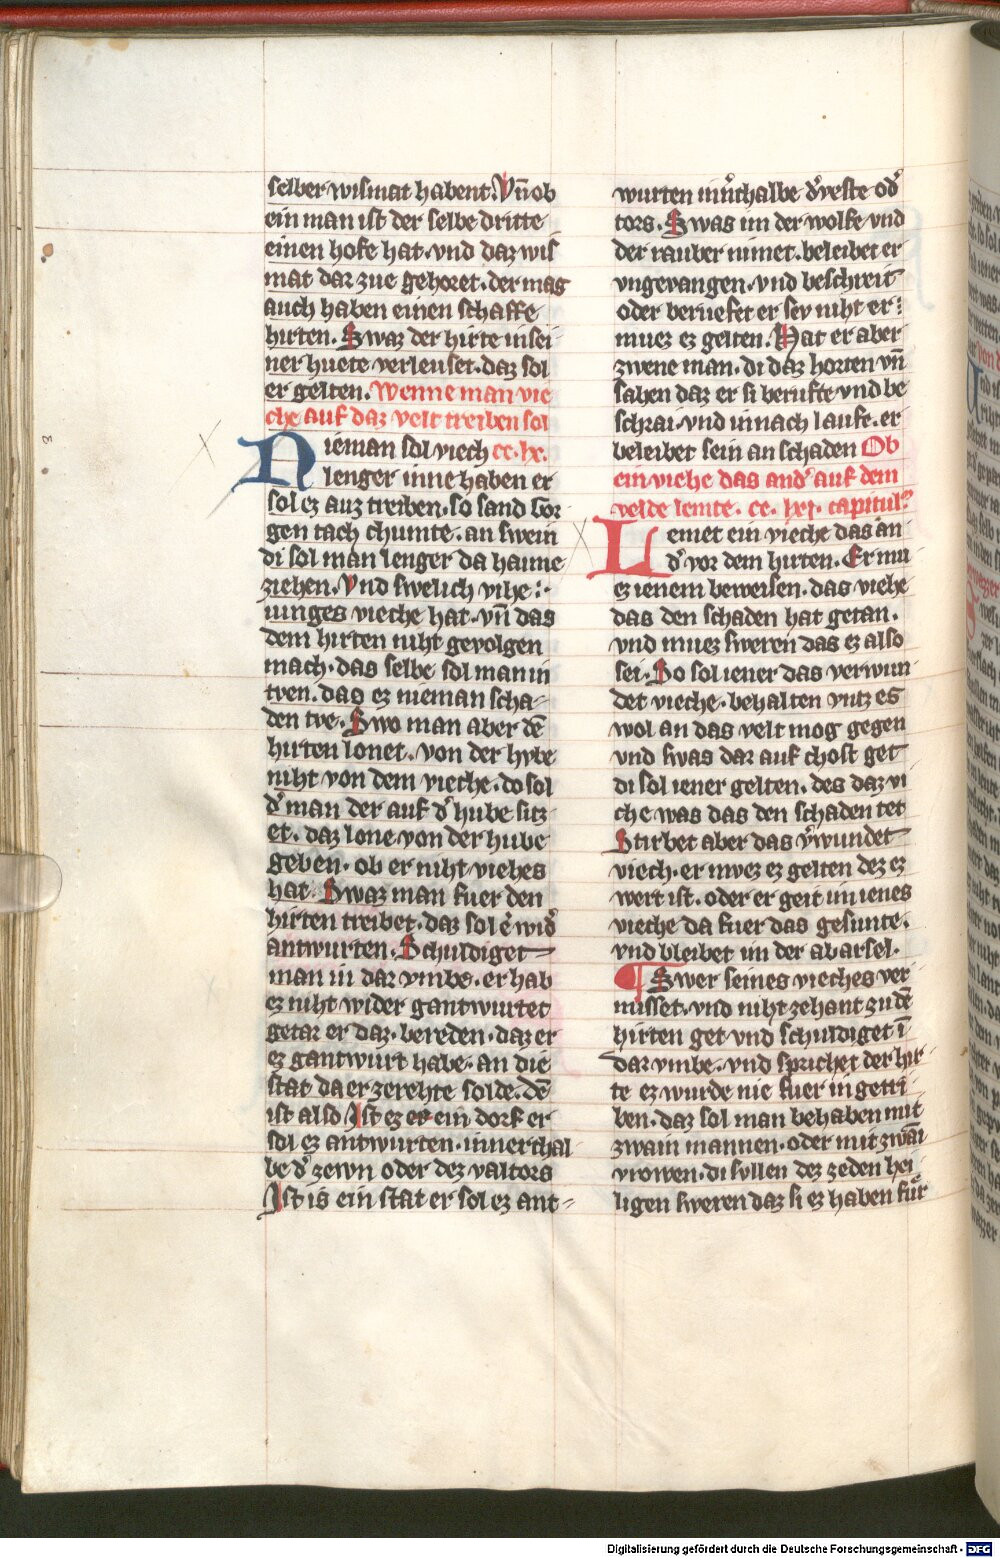 selber wismat habent. Vn̄ ob
ein man ist der selbe dritte
einen hofe hat. vnd daz wis
mat dar zue gehoret. der mag
auch haben einen schaffe
hirten. Swaz der hirte in sei
ner huete verleuset. daz sol
er gelten. Wenne man vie
che auf daz velt treiben sol
Nieman sol viech cc. lx.
lenger inne haben er
sol ez auz treiben. so sand Gor
gen tach chumte. an swein
di sol man lenger da haime
ziehen. Vnd swelich vihe
iunges vieche hat. vn̄ das
dem hirten niht gevolgen
mach. das selbe sol man in
tven. daz ez nieman scha-
den tve. Swo man aber dē
hirten lonet. von der hvbe
niht von dem vieche. do sol
d' man der auf d' hube sitz
et. daz lone von der hube
geben. ob er niht viehes
hat. Swaz man fuer den
hirten treibet. daz sol e' wid'
antwurten. Schuldiget
man in dar vmbe. er hab
ez niht wider gantwurtet
getar er daz. bereden. daz er
ez gantwurt habe. an die
stat da er zerehte solde. dē
ist also Ist ez er ein dorf er
sol ez antwurten. innerthal
be d' zewn oder dez valtors
Ist is ein stat er sol ez ant-
wurten inn'thalbe d' veste od'
tors. Swas im der wolfe vnd
der rauber nimet. beleibet er
vngevangen. vnd beschreit
oder beruefet er sey niht er:
muez ez gelten. Hat er aber
zwene man. di daz horten vn̄
sahen daz er si berufte vnd be
schrai. vnd in nach laufe. er
beleibet sein an schaden Ob
ein viehe das and' auf dem
velde lemte. cc. lxi. capitul'
Lemet ein vieche das an
d' vor dem hirten. Er mu
ez ienem beweisen. das viehe
das den schaden hat getan.
vnd muez sweren das ez also
sei. So sol iener das verwun
det vieche. behalten vntz es
wol an das velt mog gegen
vnd swas dar auf chost get
di sol iener gelten. des daz vi
che was das den schaden tet
Stirbet aber das v'wundet
viech. er mvez ez gelten dez ez
wert ist. oder er geit im ienes
vieche da fuer das gesunte.
vnd bleibet im der abarsel.
¶ Swer seines vieches ver
misset. vnd niht zehant zu dē
hirten get vnd schuldiget ī
dar vmbe. vnd sprichet der hir
te ez wurde nie fuer in getri
ben. daz sol man behaben mit
zwain mannen. oder mit zwāi
vrowen. di svllen dez zeden hei
ligen sweren daz si ez haben fur
Digitalisierung gefördert durch die Deutsche Forschungsgemeinschaft - DFG